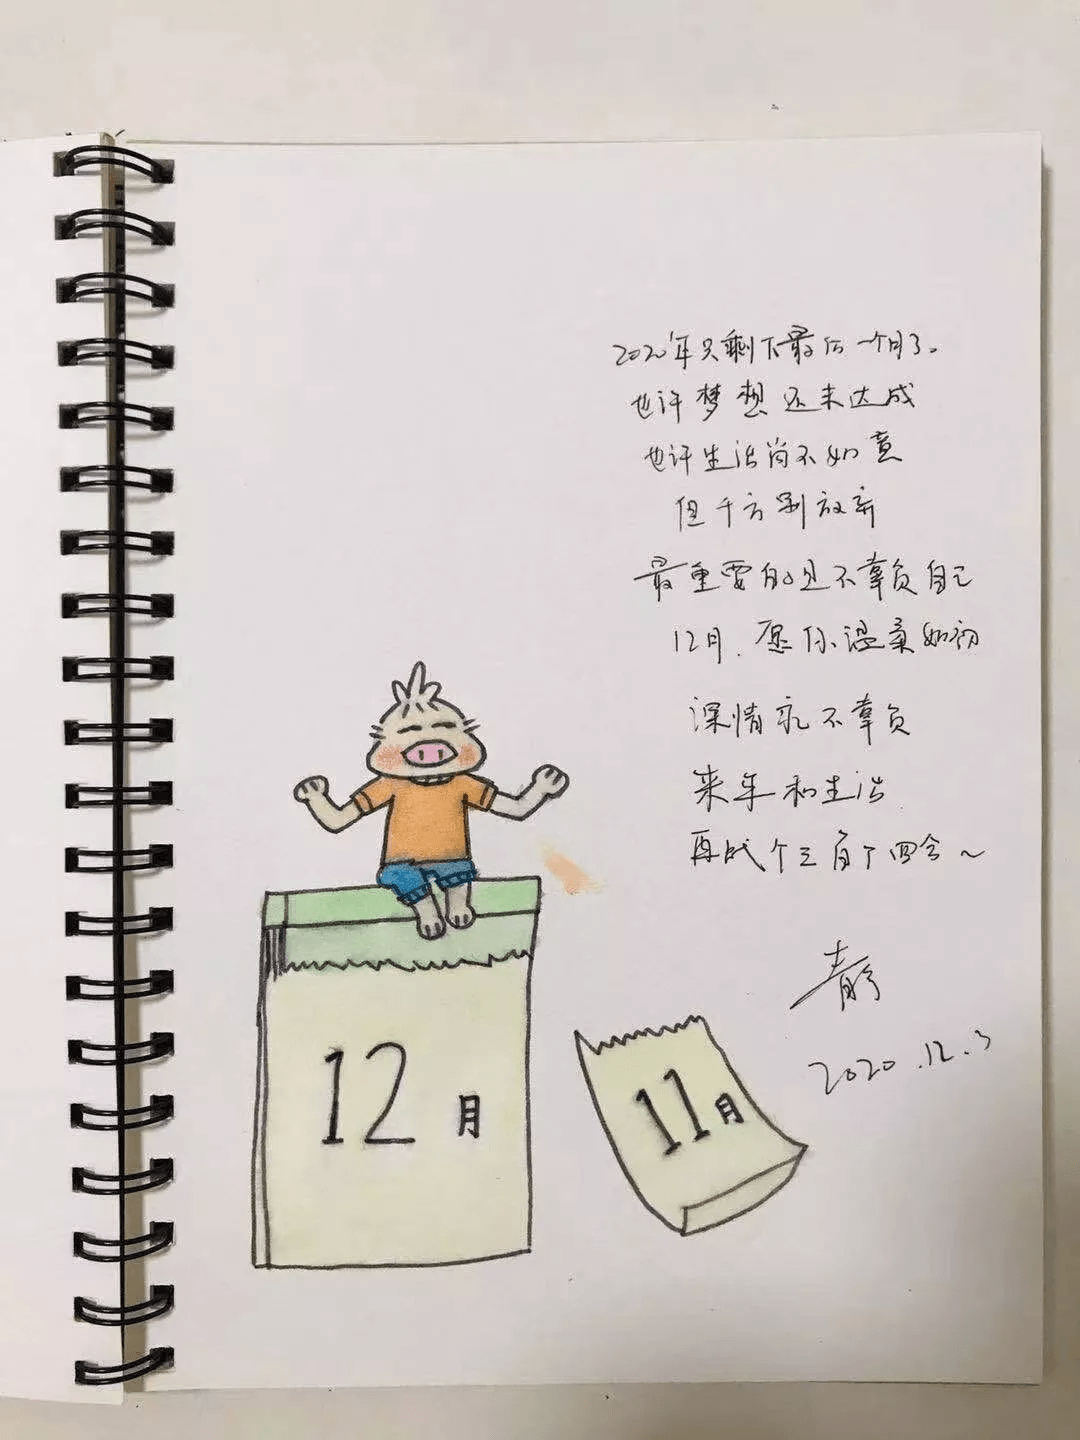 2020年只剩下最后一个月了。
也许梦想还未达成
也许生活尚不如意
但千万别放弃
最重要的是不辜负自己
12月.愿你温柔如初
深情永不辜负
来年和生活
再战个三百了四舍~
静
2020.12.3
12月
11月